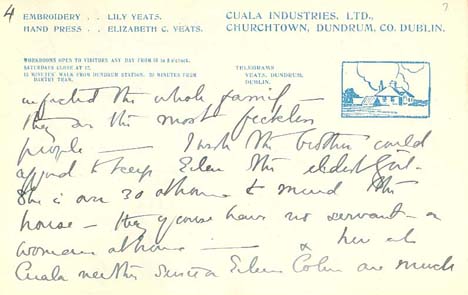 4
7
EMBROIDERY . . LILY YEATS.
HAND PRESS . . ELIZABETH C. YEATS.
CUALA INDUSTRIES, LTD.,
CHURCHTOWN, DUNDRUM, CO. DUBLIN.
WORKROOMS OPEN TO VISITORS ANY DAY FROM 10 to 5 o'clock.
SATURDAYS CLOSE AT 12.
15 MINUTES' WALK FROM DUNDRUM STATION. 20 MINUTES FROM
DARTRY TRAM.
TELEGRAMS
YEATS, DUNDRUM,
DUBLIN.
infected the whole family —
They are the most feckless
people — I wish the brother could
afford to keep Eileen the eldest girl.
She is over 30 at home & mind the
house — they of course have no servant — or
woman at home — &
Cuala neither Eileen are much